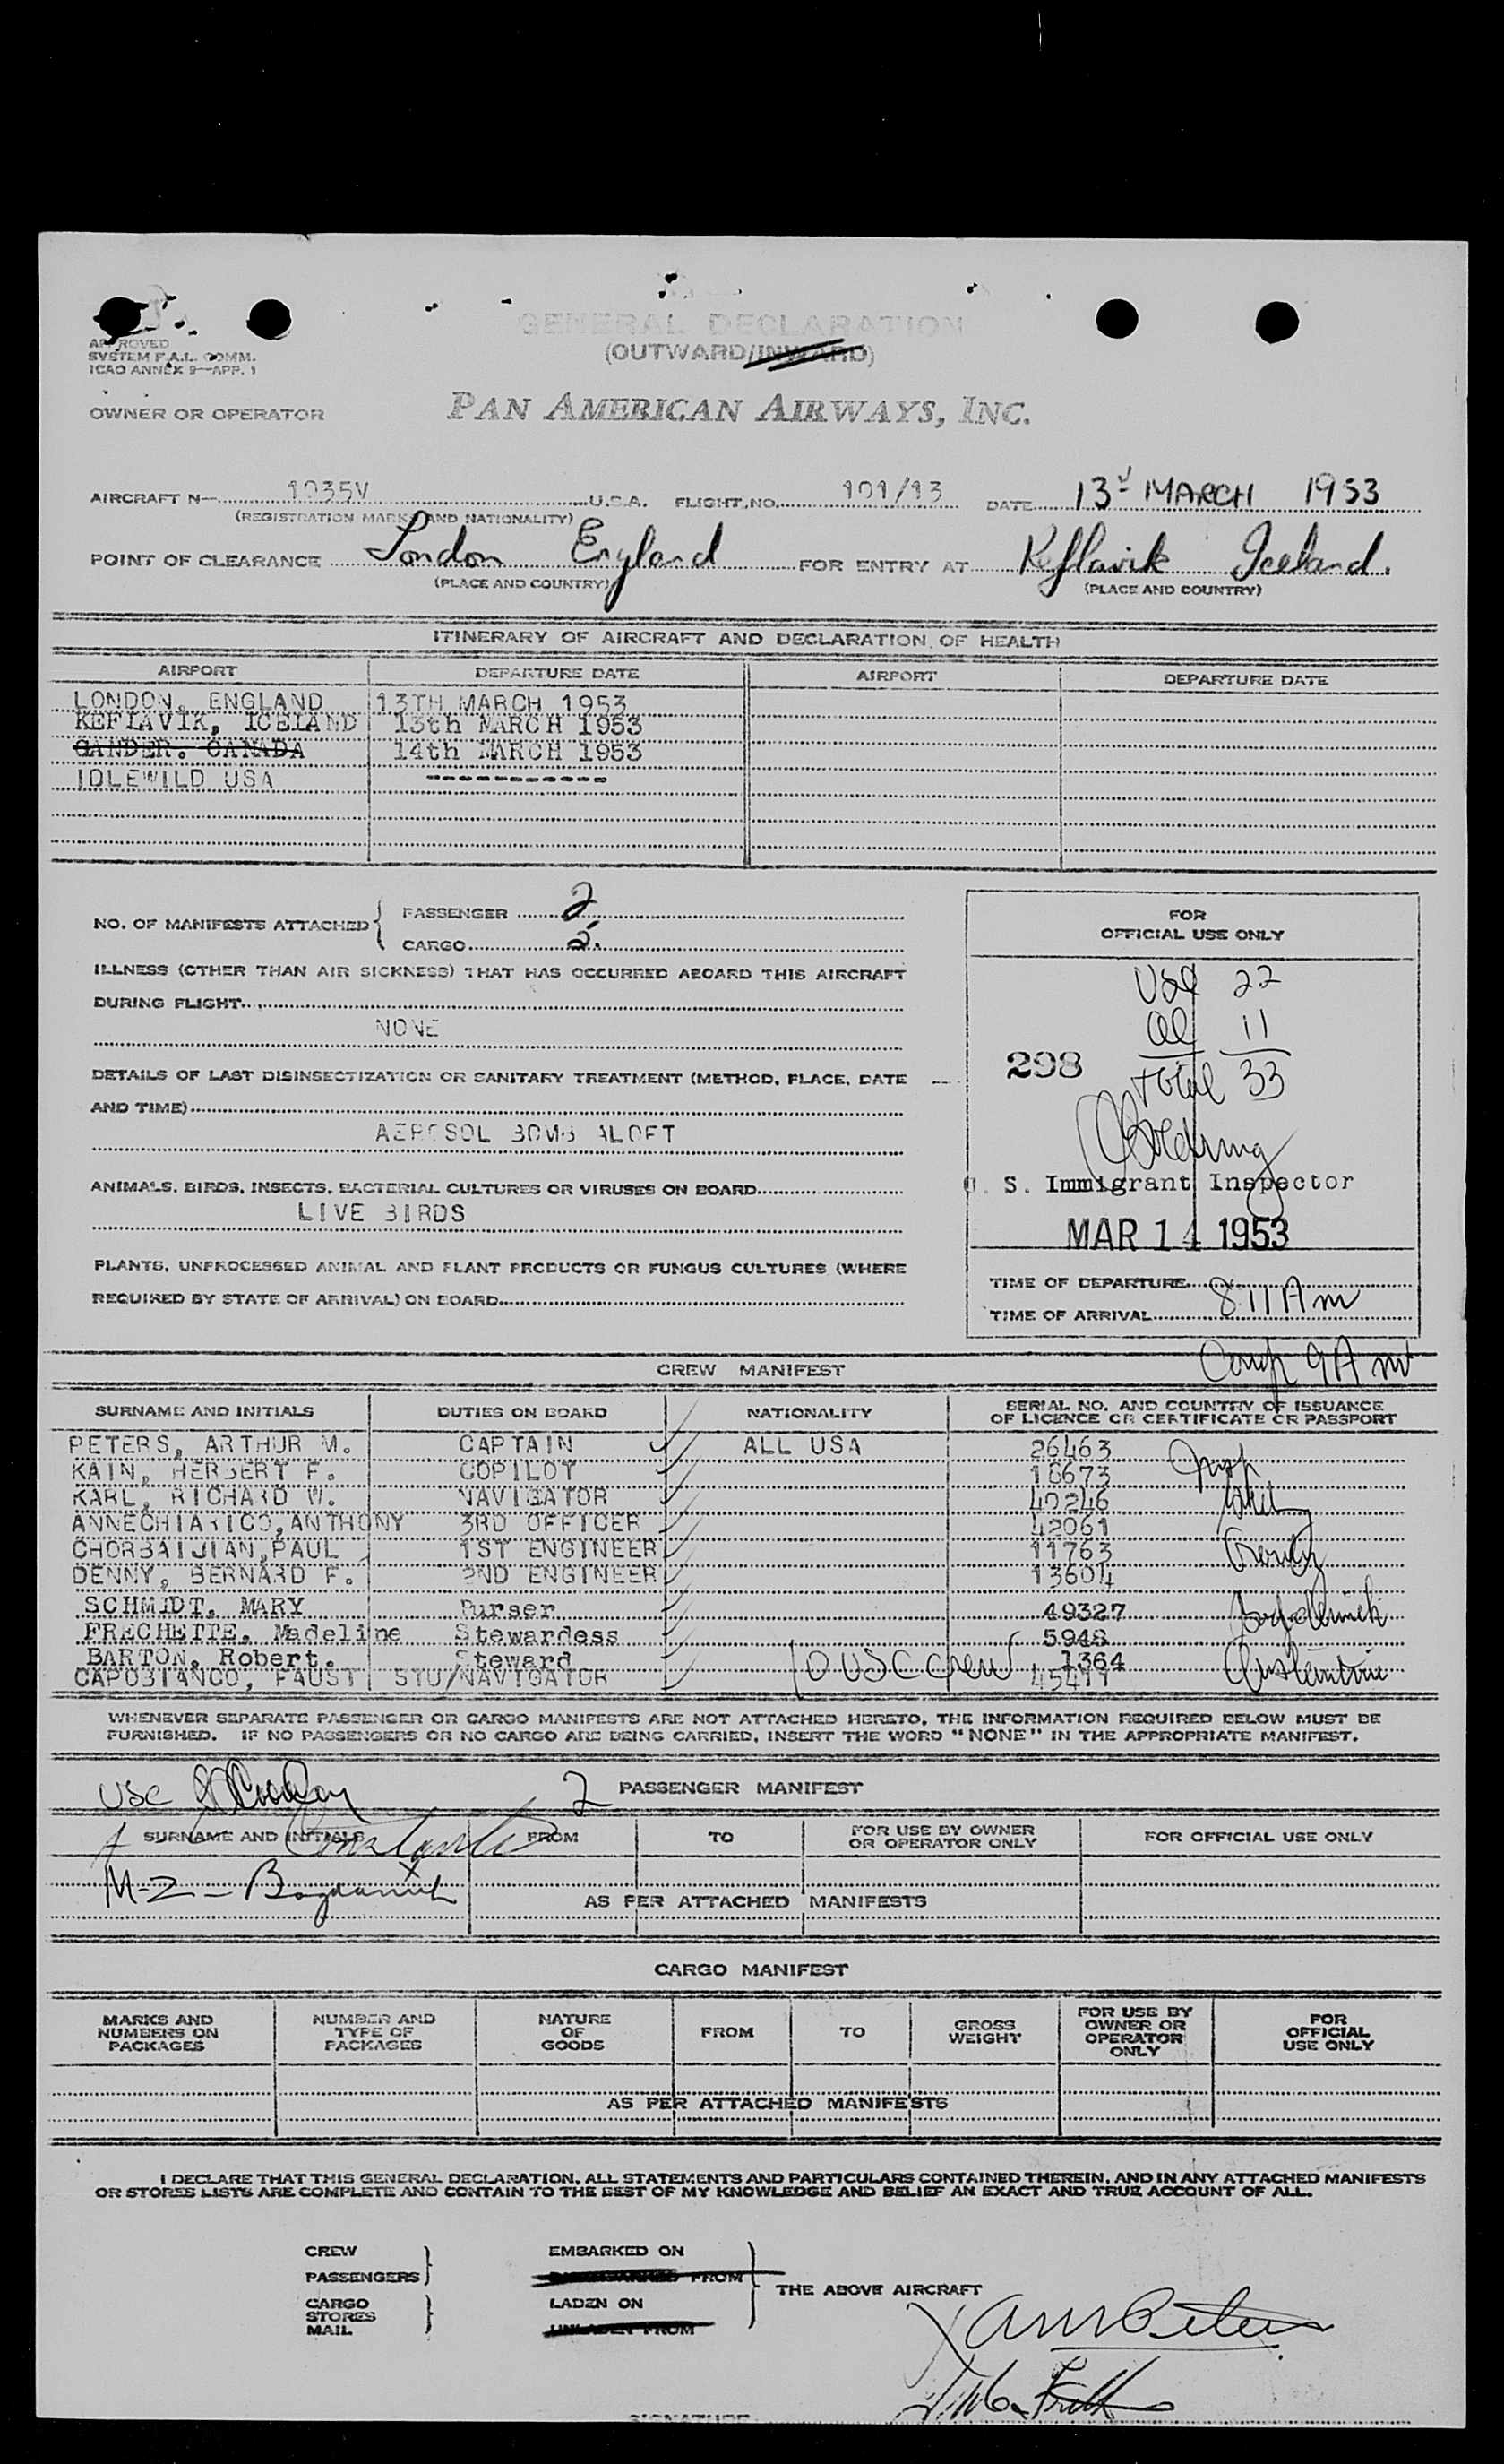 GENERAL DECLARATION
(OUTWARD/INWARD)
APPROVED
SYSTEM F.A.L. COMM.
ICAO ANNEX 9—APP. 1
OWNER OR OPERATOR PAN AMERICAN AIRWAYS, INC.
AIRCRAFT N— 1035V U.S.A. FLIGHT NO. 101/13 DATE 13 MARCH 1953
(REGISTRATION MARKS AND NATIONALITY)
POINT OF CLEARANCE London England FOR ENTRY AT Keflavik Iceland.
(PLACE AND COUNTRY) (PLACE AND COUNTRY)
ITINERARY OF AIRCRAFT AND DECLARATION OF HEALTH
AIRPORT DEPARTURE DATE AIRPORT DEPARTURE DATE
LONDON, ENGLAND 13TH MARCH 1953
KEFLAVIK, ICELAND 13th MARCH 1953
GANDER. CANADA 14th MARCH 1953
IDLEWILD USA -----------
NO. OF MANIFESTS ATTACHED { PASSENGER 2
CARGO 5.
ILLNESS (OTHER THAN AIR SICKNESS) THAT HAS OCCURRED ABOARD THIS AIRCRAFT
DURING FLIGHT
NONE
DETAILS OF LAST DISINSECTIZATION OR SANITARY TREATMENT (METHOD, PLACE, DATE
AND TIME)
AEROSOL BOMB ALOFT
ANIMALS, BIRDS, INSECTS, BACTERIAL CULTURES OR VIRUSES ON BOARD
LIVE BIRDS
PLANTS, UNPROCESSED ANIMAL AND PLANT PRODUCTS OR FUNGUS CULTURES (WHERE
REQUIRED BY STATE OF ARRIVAL) ON BOARD
FOR
OFFICIAL USE ONLY
USC 22
al 11
298 total 33
U. S. Immigrant Inspector
MAR 14 1953
TIME OF DEPARTURE
TIME OF ARRIVAL 811 Am
Comp 9 A m
CREW MANIFEST
SURNAME AND INITIALS DUTIES ON BOARD NATIONALITY SERIAL NO. AND COUNTRY OF ISSUANCE
OF LICENCE OR CERTIFICATE OR PASSPORT
PETERS, ARTHUR M. CAPTAIN ALL USA 26463
KAIN, HERBERT F. COPILOT 18673
KARL, RICHARD W. NAVIGATOR 40246
ANNECHIARICO, ANTHONY 3RD OFFICER 42061
CHORBAIJIAN, PAUL 1ST ENGINEER 11763
DENNY, BERNARD F. 2ND ENGINEER 13604
SCHMIDT, MARY Purser 49327
FRECHETTE, Madeline Stewardess 5948
BARTON, Robert. Steward 10 USC Crew 1364
CAPOBIANCO, FAUST STU/NAVIGATOR 45411
WHENEVER SEPARATE PASSENGER OR CARGO MANIFESTS ARE NOT ATTACHED HERETO, THE INFORMATION REQUIRED BELOW MUST BE
FURNISHED. IF NO PASSENGERS OR NO CARGO ARE BEING CARRIED, INSERT THE WORD "NONE" IN THE APPROPRIATE MANIFEST.
USC 2 PASSENGER MANIFEST
SURNAME AND INITIALS FROM TO FOR USE BY OWNER
OR OPERATOR ONLY FOR OFFICIAL USE ONLY
M-Z -
AS PER ATTACHED MANIFESTS
CARGO MANIFEST
MARKS AND
NUMBERS ON
PACKAGES
NUMBER AND
TYPE OF
PACKAGES
NATURE
OF
GOODS
FROM
TO
GROSS
WEIGHT
FOR USE BY
OWNER OR
OPERATOR
ONLY
FOR
OFFICIAL
USE ONLY
AS PER ATTACHED MANIFESTS
I DECLARE THAT THIS GENERAL DECLARATION, ALL STATEMENTS AND PARTICULARS CONTAINED THEREIN, AND IN ANY ATTACHED MANIFESTS
OR STORES LISTS ARE COMPLETE AND CONTAIN TO THE BEST OF MY KNOWLEDGE AND BELIEF AN EXACT AND TRUE ACCOUNT OF ALL.
CREW EMBARKED ON
PASSENGERS DISEMBARKED FROM
THE ABOVE AIRCRAFT
CARGO LADEN ON
STORES
MAIL UNLADEN FROM
SIGNATURE